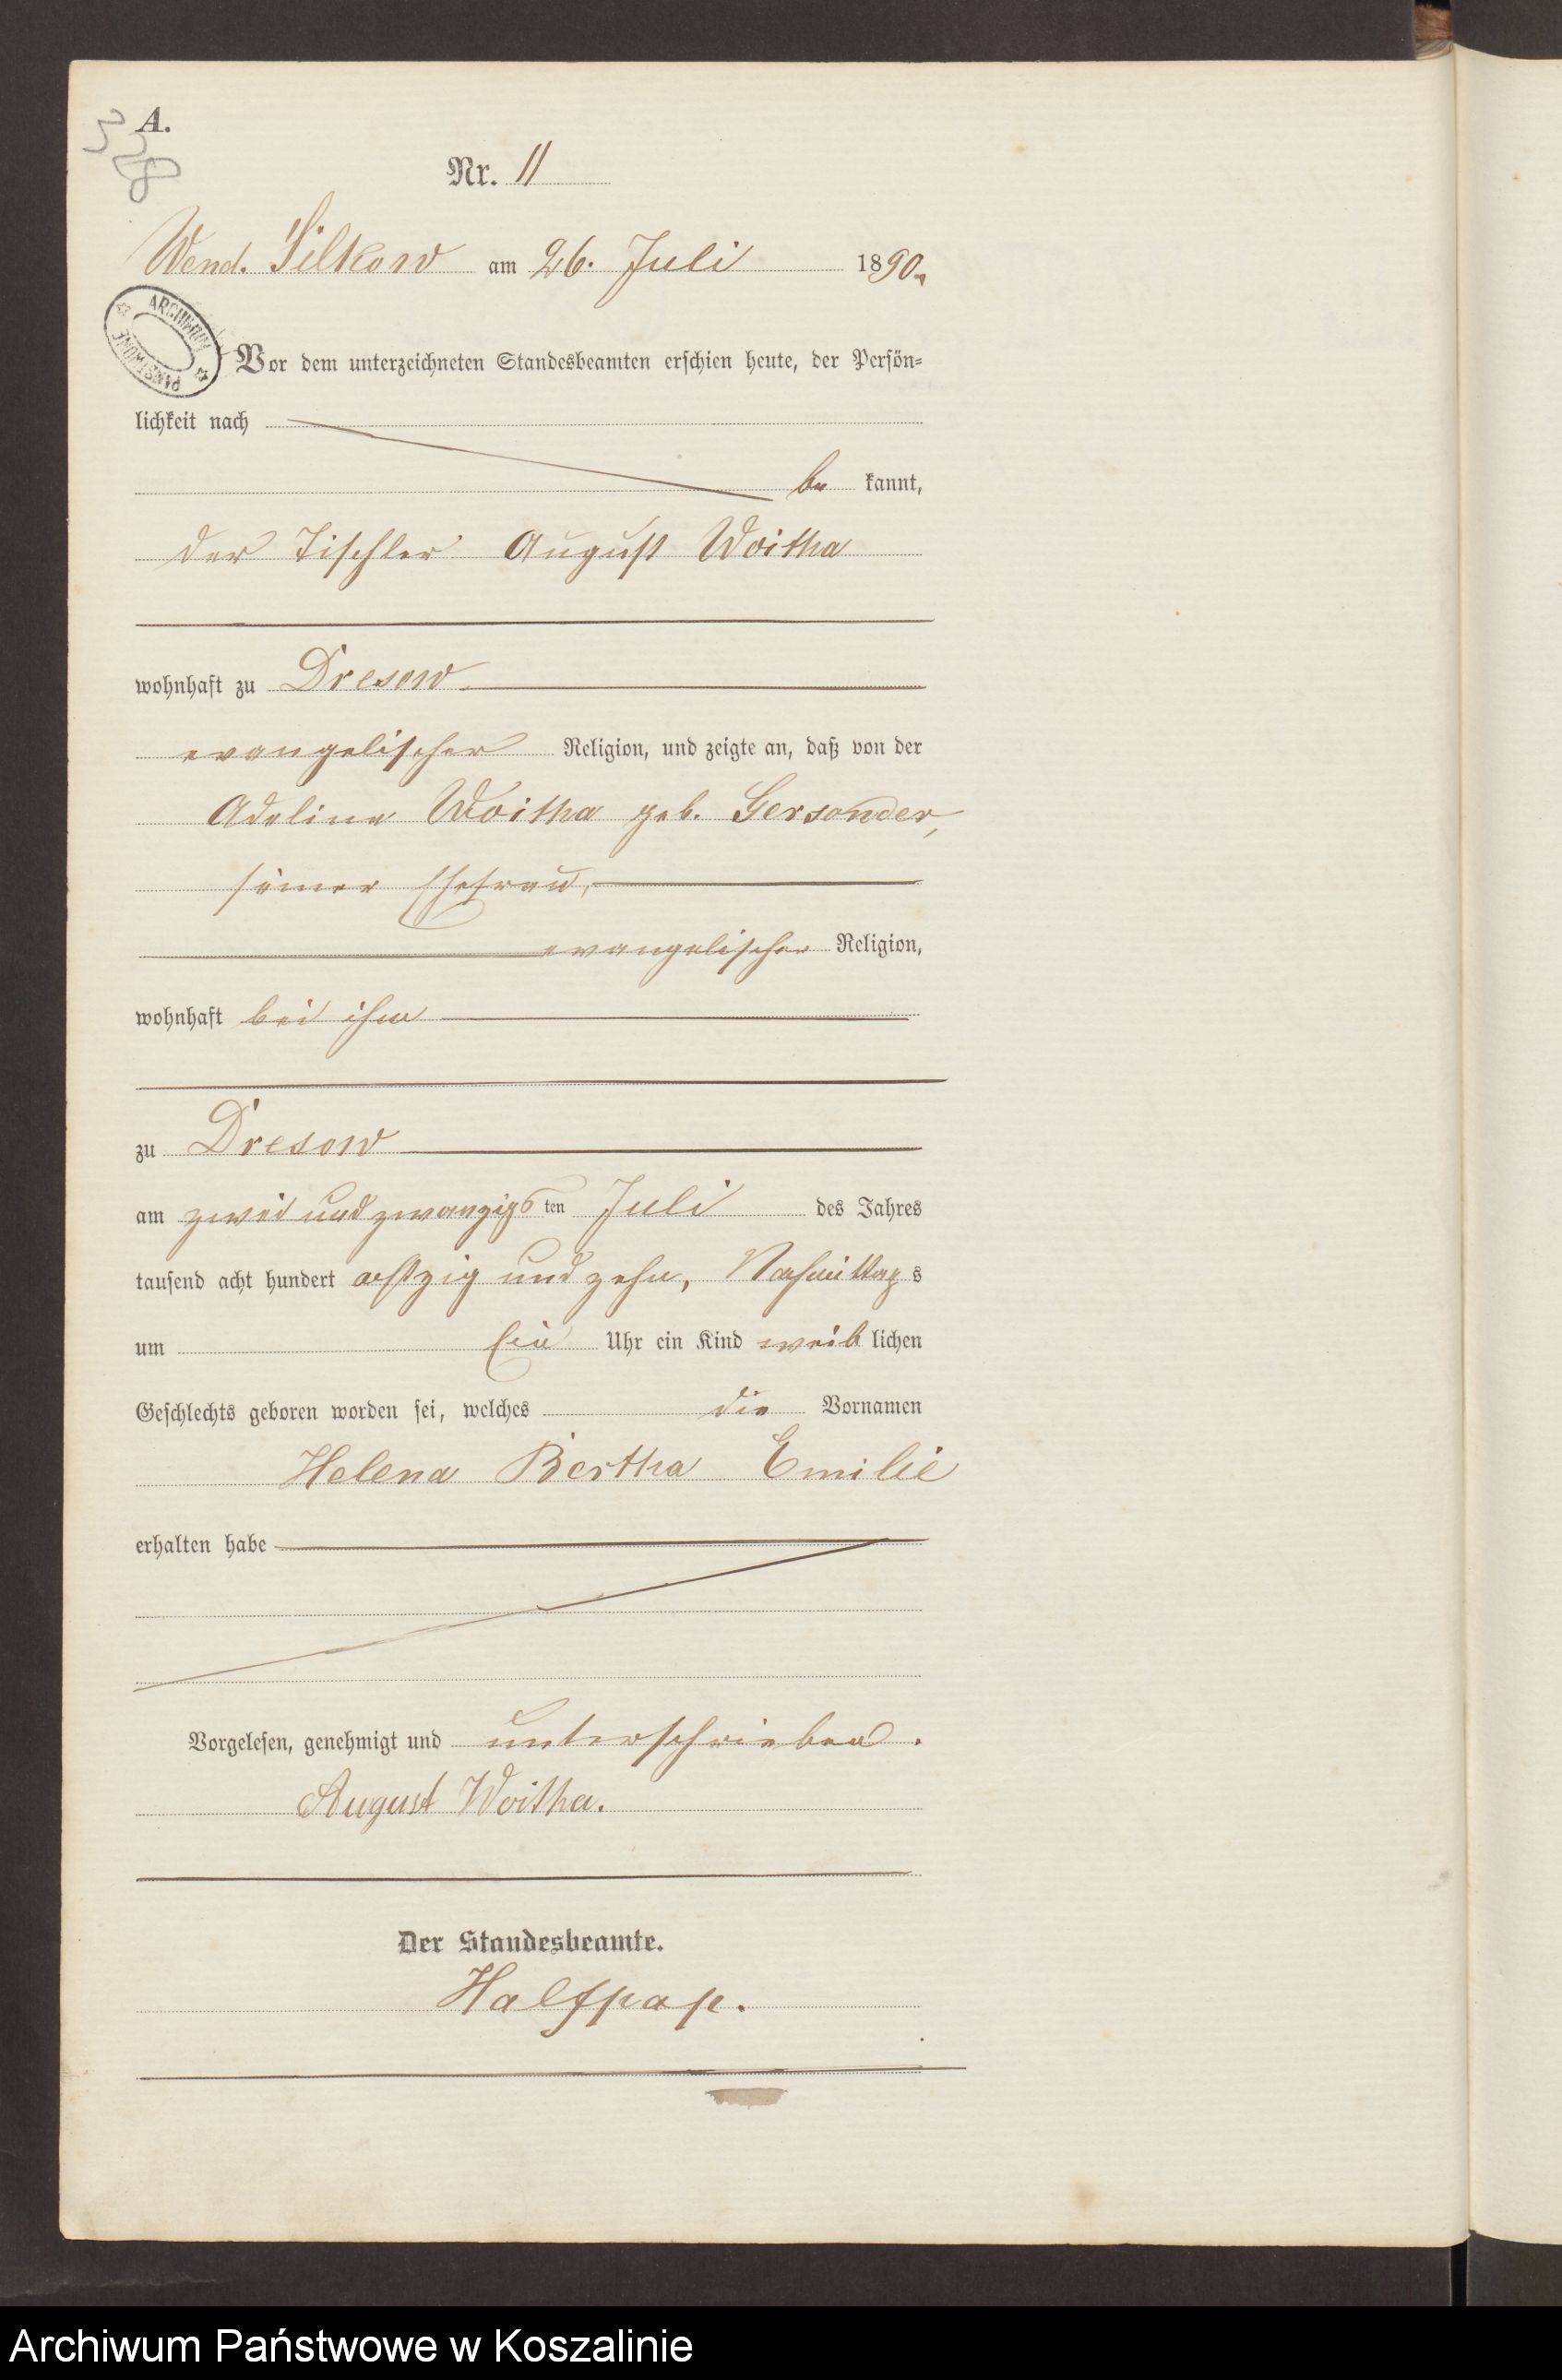 A.
338
Nr. 11
Wend. Silkow am 26. Juli 1890.
ARCHIWUM PAŃSTWOWE
Vor dem unterzeichneten Standesbeamten erschien heute, der Persön=
lichkeit nach
be kannt,
der Tischler August Woitha
wohnhaft zu Dresow
evangelischer Religion, und zeigte an, daß von der
Adeline Woitha geb. Gersonder,
seiner Ehefrau,
evangelischer Religion,
wohnhaft bei ihm
zu Dresow
am zwei und zwanzigs ten Juli des Jahres
tausend acht hundert achtzig und zehn, Nachmittag s
um Ein Uhr ein Kind weib lichen
Geschlechts geboren worden sei, welches die Vornamen
Helena Bertha Emilie
erhalten habe
Vorgelesen, genehmigt und unterschrieben.
August Woitha.
Der Standesbeamte.
Halfpap.
Archiwum Państwowe w Koszalinie